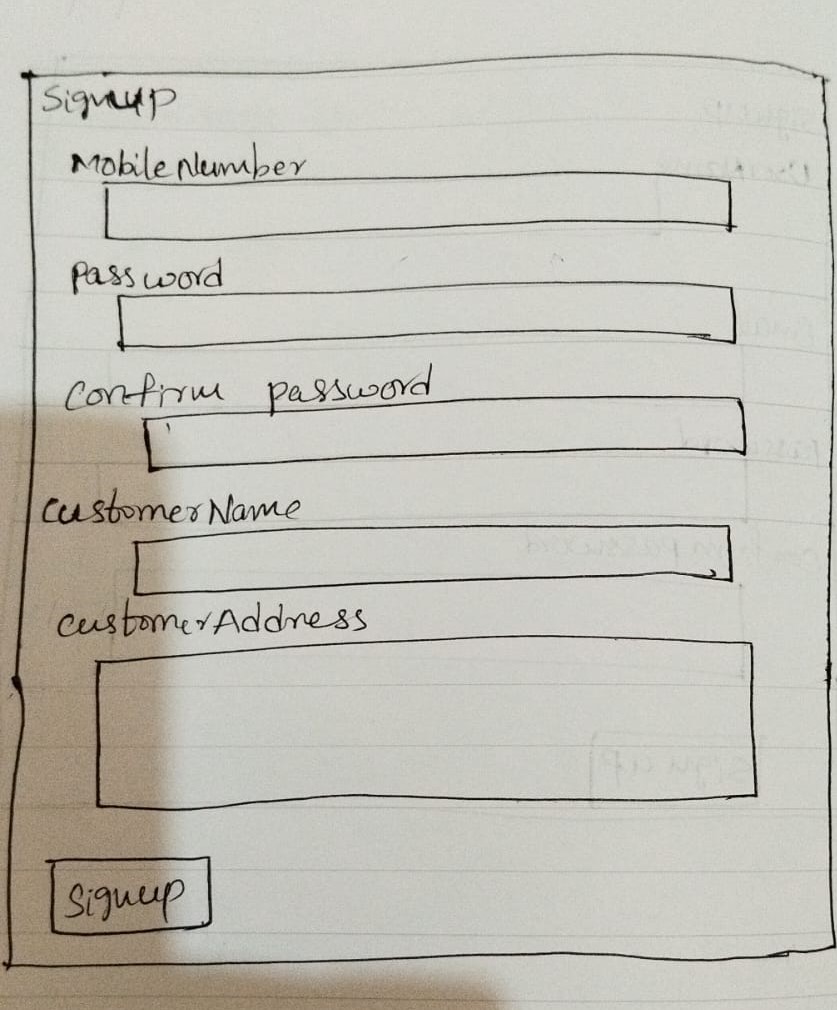 Signup
Mobile Number
Password
Confirm password
Customer Name
Customer Address
Signup